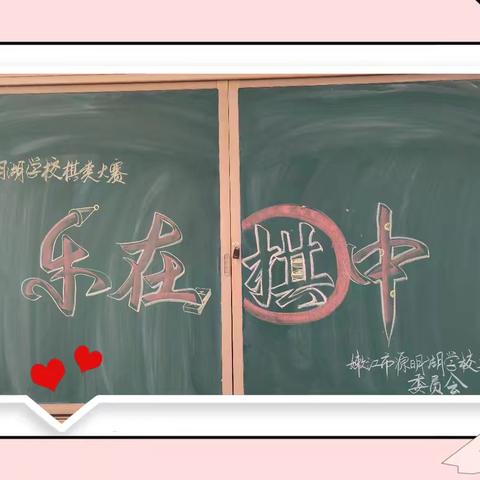 明湖学校棋类大赛
乐在棋中
嫩江市源明湖学校
委员会